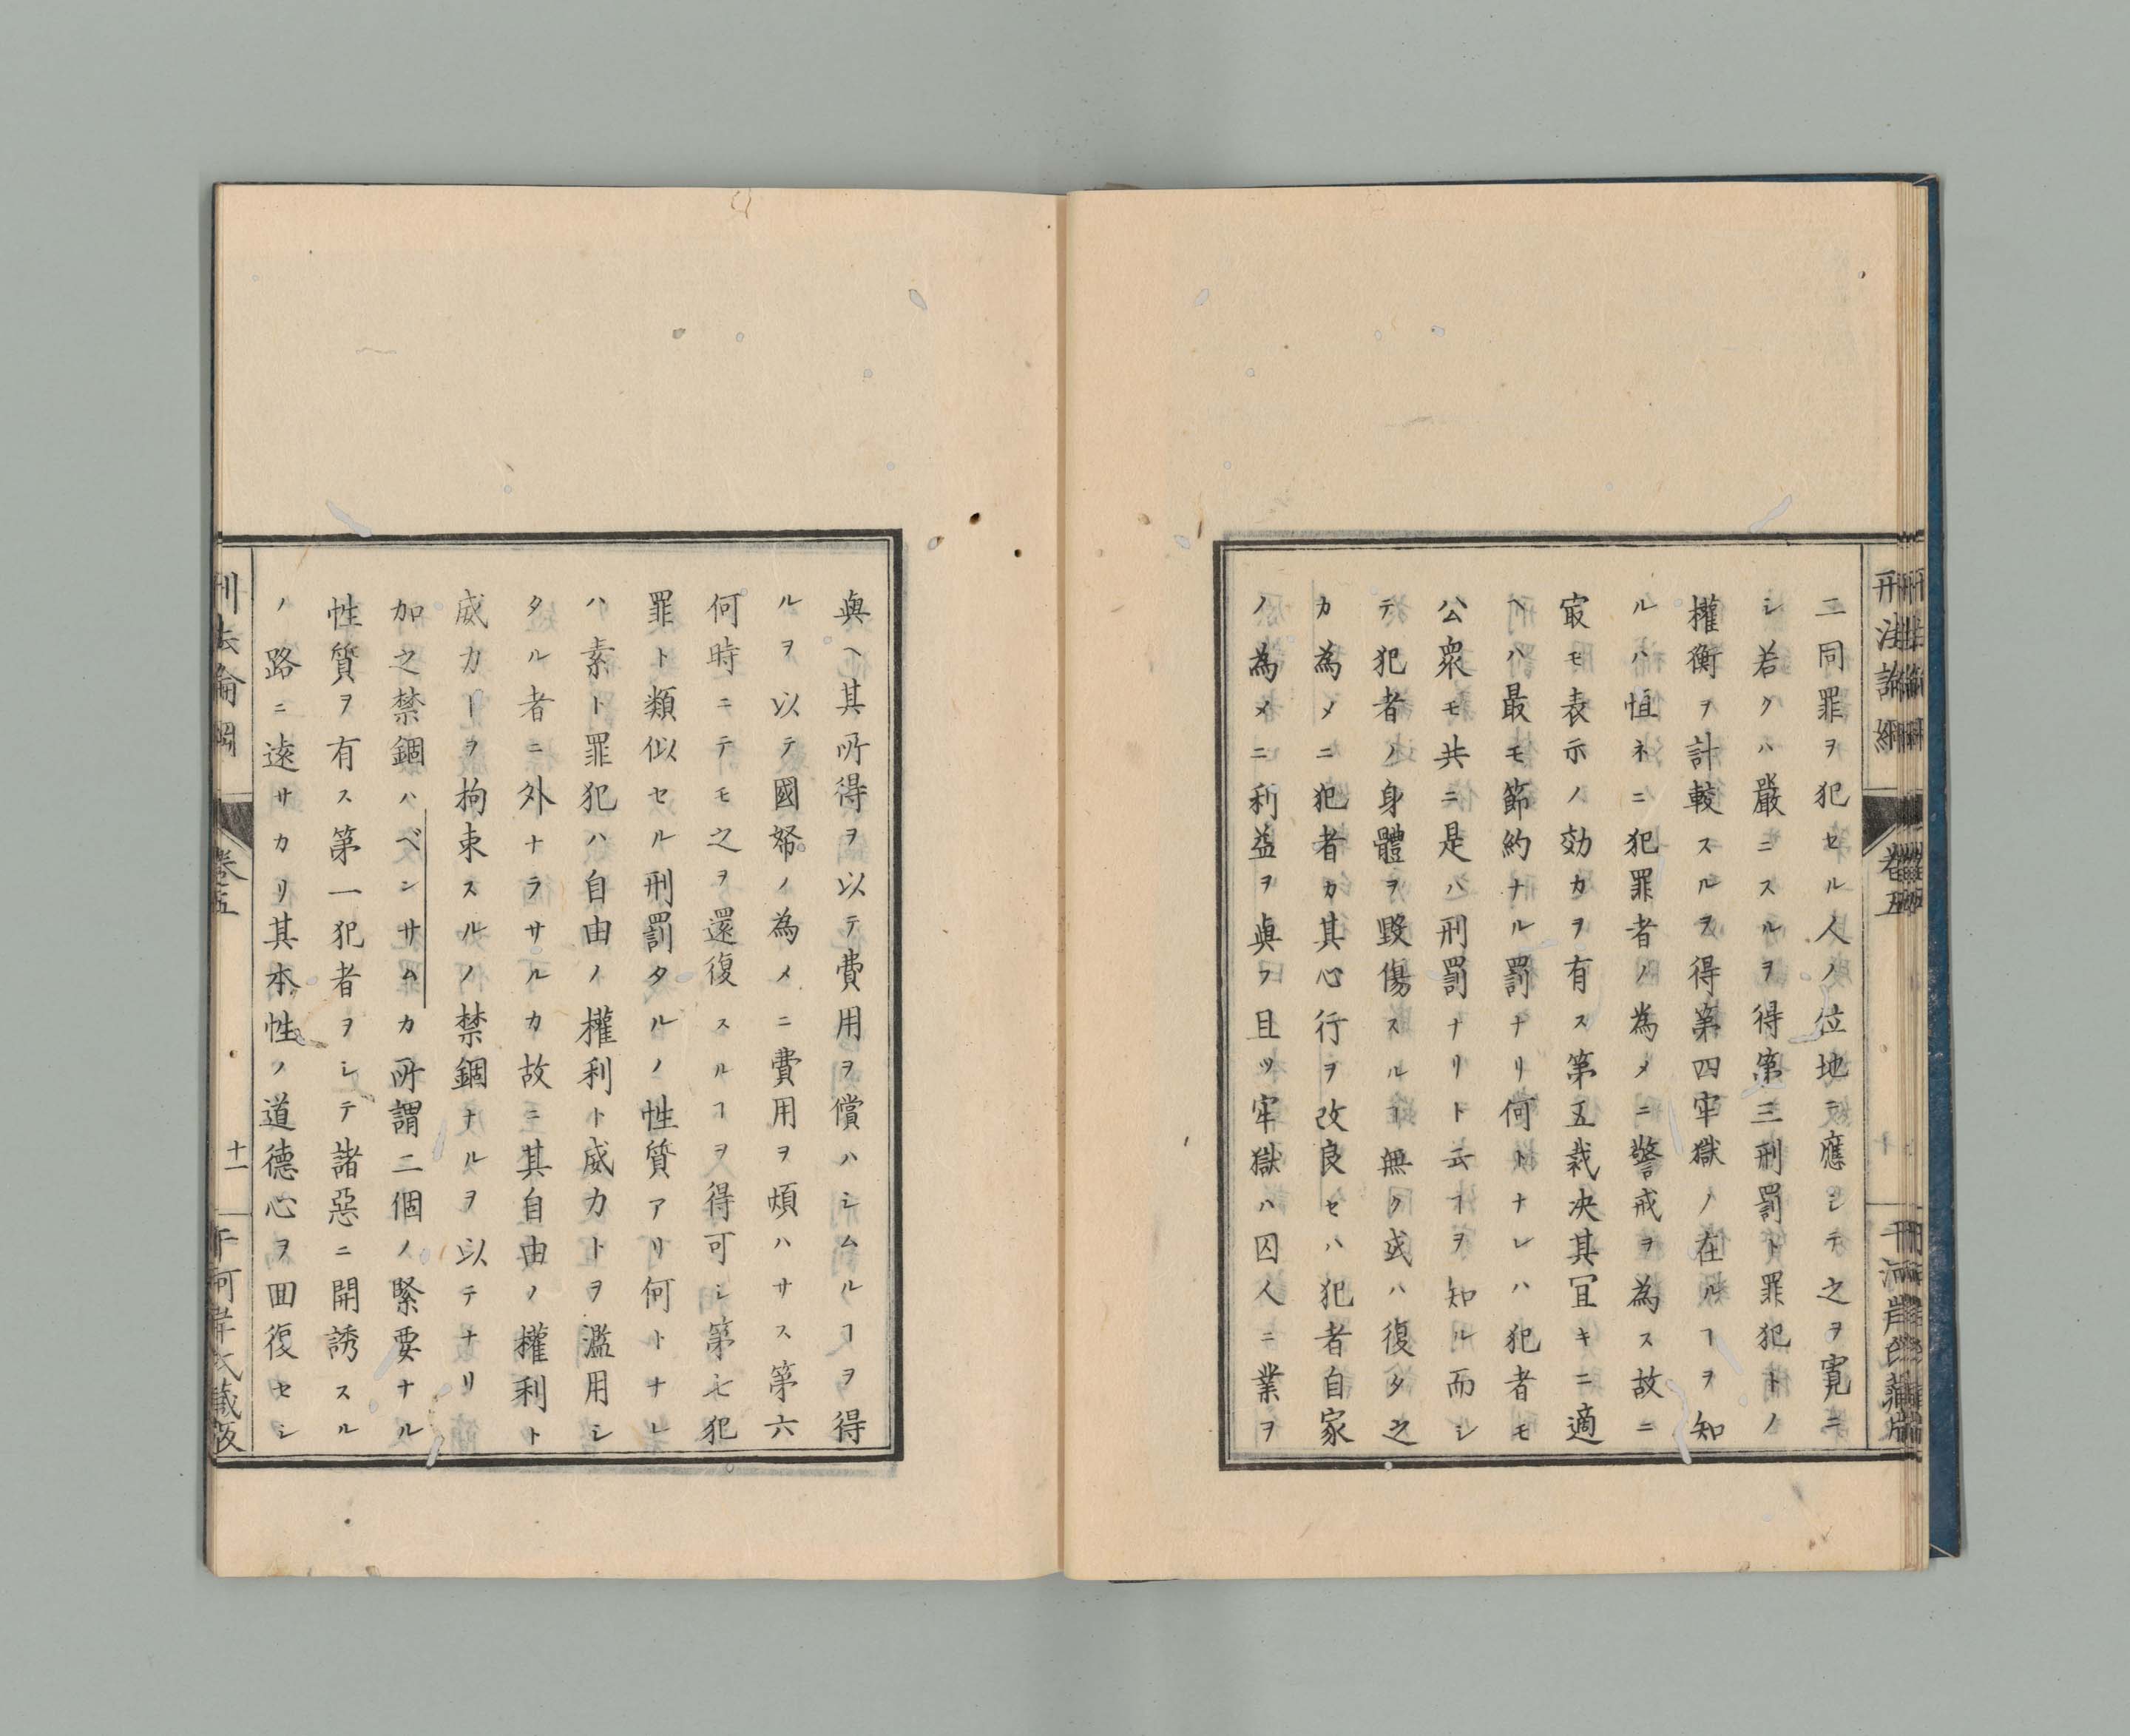 二同罪ヲ犯セル人ノ位地ニ應シテ之ヲ寛ニ
シ若クハ嚴ニスルヲ得第三刑罰ト罪犯トノ
權衡ヲ計較スルヲ得第四牢獄ノ在ルヿヲ知
ルハ恒ネニ犯罪者ノ為メニ警戒ヲ為ス故ニ
冣モ表示ノ効力ヲ有ス第五裁决其冝キニ適
ヘハ最モ節約ナル罰ナリ何トナレハ犯者モ
公衆モ共ニ是ハ刑罰ナリト云ヿヲ知ル而シ
テ犯者ノ身體ヲ毀傷スルヿ無ク或ハ復タ之
カ為メニ犯者カ其心行ヲ改良セハ犯者自家
ノ為メニ利益ヲ與フ且ツ牢獄ハ囚人ニ業ヲ
與ヘ其所得ヲ以テ費用ヲ償ハシムルヿヲ得
ルヲ以テ國帑ノ為メニ費用ヲ煩ハサス第六
何時ニテモ之ヲ還復スルヿヲ得可シ第七犯
罪ト類似セル刑罰タルノ性質アリ何トナレ
ハ素ト罪犯ハ自由ノ權利ト威力トヲ濫用シ
タル者ニ外ナラサルカ故ニ其自由ノ權利ト
威力ーヲ拘束スルノ禁錮ナルヲ以テナリ
加之禁錮ハベンサムカ所謂二個ノ緊要ナル
性質ヲ有ス第一犯者ヲシテ諸惡ニ開誘スル
ノ路ニ遠サカリ其本性ノ道德心ヲ囬復セシ
刑法論綱
卷五
十一